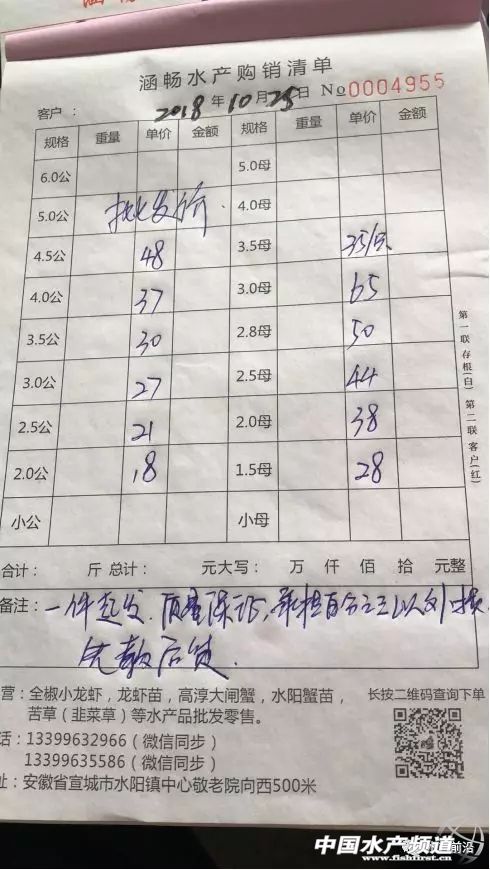 涵畅水产购销清单
客户： 2018年10月25日 No0004955
规格 重量 单价 金额 规格 重量 单价 金额
6.0公 5.0母
5.0公 批发价 4.0母
4.5公 48 3.5母 35/只
4.0公 37 3.0母 65
3.5公 30 2.8母 50
3.0公 27 2.5母 44
2.5公 21 2.0母 38
2.0公 18 1.5母 28
小公 小母
合计： 斤 总计： 元大写： 万 仟 佰 拾 元整
备注：一件起发.质量保证,承担百分之三以外损
先款后货.
第一联 存根(白) 第二联 客户(红)
营：全椒小龙虾，龙虾苗，高淳大闸蟹，水阳蟹苗，
苦草（韭菜草）等水产品批发零售。
长按二维码查询下单
话：13399632966（微信同步）
13399635586（微信同步）
址：安徽省宣城市水阳镇中心敬老院向西500米
中国水产频道
www.fishfirst.cn
前沿